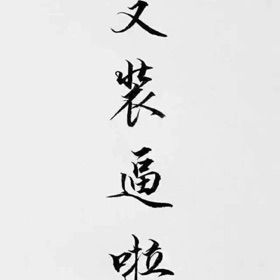 又装逼啦